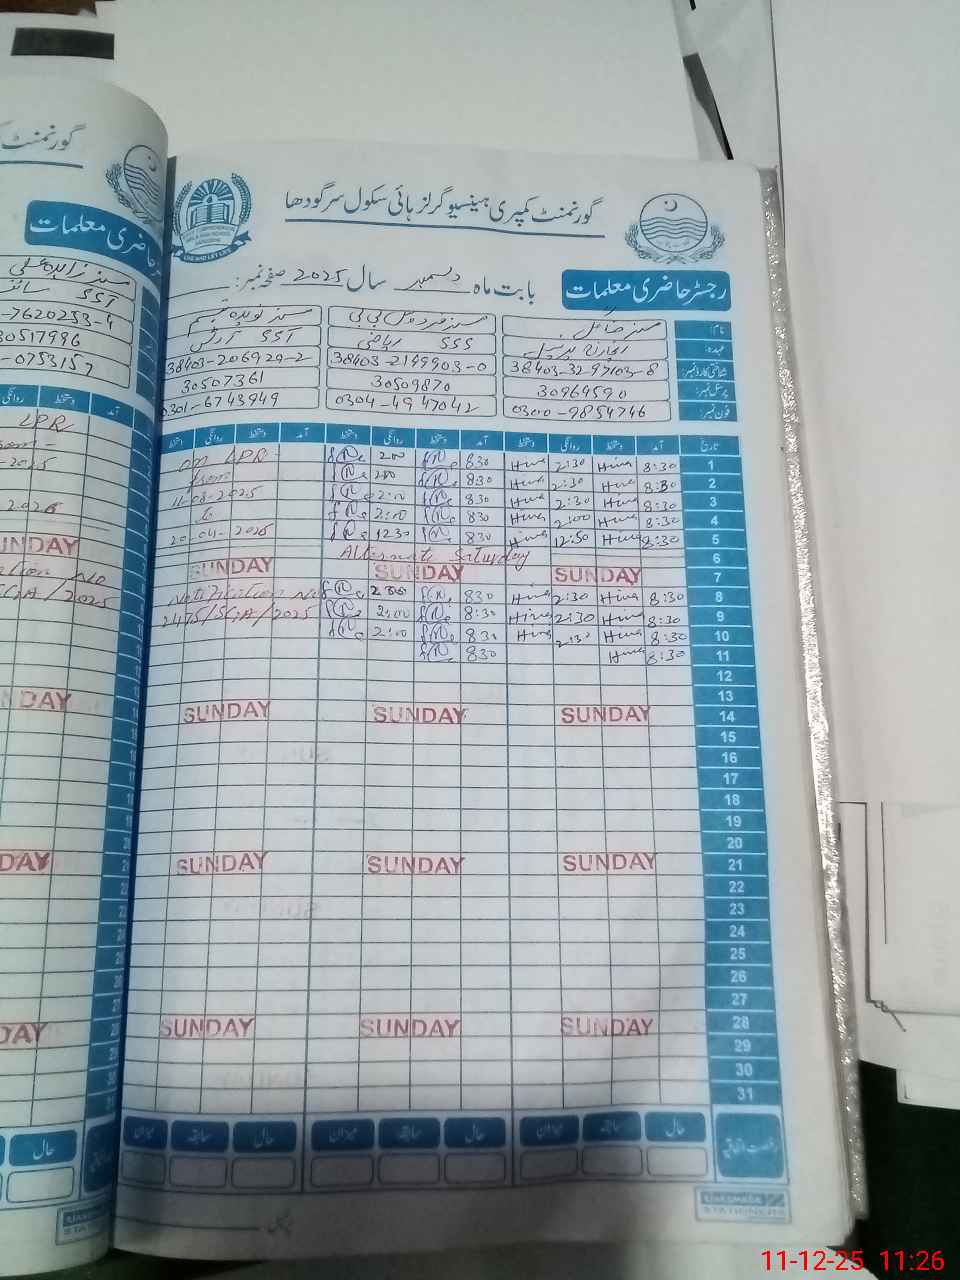 گورنمنٹ کمپری ہینسیو گرلز ہائی سکول سرگودھا
LIVE AND LET LIVE
رجسٹر حاضری معلمات
بابت ماہ دسمبر سال 2025 صفحہ نمبر:
نام:
عہدہ: انچارج پرنسپل SSS ریاضی SST آرٹس
شناختی کارڈ نمبر: 38403-3297103-8 38403-2149903-0 38403-206929-2
پرسنل نمبر: 30964590 30509870 30507361
فون نمبر: 0300-9854746 0304-4947042 0301-6743949
تاریخ آمد دستخط روانگی دستخط آمد دستخط روانگی دستخط آمد دستخط روانگی دستخط
1 8:30 Hina 2:30 Hina 830 200 on LPR
2 8:30 Hina 2:30 Hina 830 200 from
3 8:30 Hina 2:30 Hina 830 2:00 11-08-2025
4 8:30 Hina 2:00 Hina 830 2:00
5 8:30 Hina 12:50 Hina 830 1230 20-04-2026
6 Alternate Saturday
7 SUNDAY SUNDAY SUNDAY
8 8:30 Hina 2:30 Hina 830 200 Notification No
9 8:30 Hina 2:30 Hina 8:30 2:00 2475/SGA/2025
10 8:30 Hina 2:30 Hina 830 2:00
11 8:30 Hina 830
12
13
14 SUNDAY SUNDAY SUNDAY
15
16
17
18
19
20
21 SUNDAY SUNDAY SUNDAY
22
23
24
25
26
27
28 SUNDAY SUNDAY SUNDAY
29
30
31
رخصت اتفاقیہ حال سابقہ میزان حال سابقہ میزان حال سابقہ میزان
STATIONERS
گورنمنٹ
حاضری معلمات
SST
-7620253-4
30517996
-0753157
آمد دستخط روانگی
LPR
-2025
2026
SUNDAY
SGA/2025
SUNDAY
SUNDAY
SUNDAY
حال
11-12-25 11:26